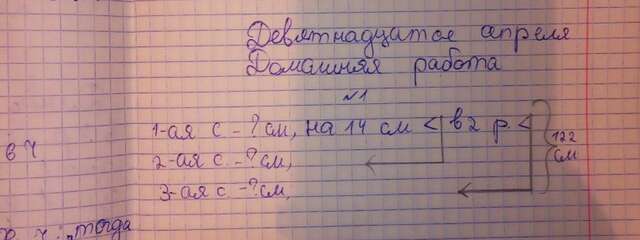 Девятнадцатое апреля
Домашняя работа
№1
1-ая с - ? см, на 14 см < в 2 р. <
2-ая с. - ? см,
3-ая с - ? см,
122 см
в ч.
тогда